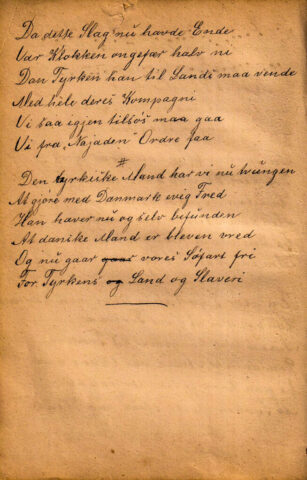 Da dette Slag nu havde Ende
Var Klokken ongefær halv ni
Den Tyrken han til Landi maa vende
Med hele deres Kompagni
Vi saa igjen tilsös maa gaa
Vi fra „Najaden" Ordre faa
#
Den tyrkiske Mand har vi nu tvungen
At gjöre med Danmark evig Fred
Han haver nu og selv befunden
At danske Mand er bleven vred
Og nu gaar gaar vores Söfart fri
For Tyrkens og Land og Slaveri